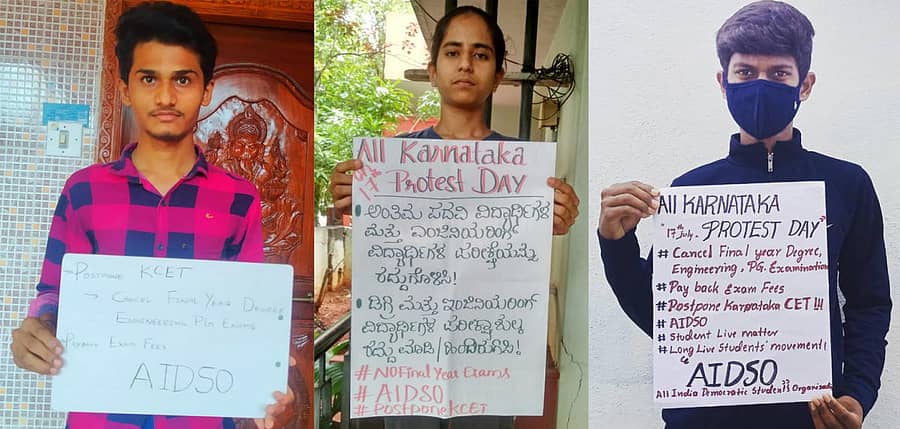 → Postpone KCET
→ Cancel Final Year Degree
Engineering PG Exams
Exam Fees
AIDSO
All Karnataka
17th Protest DAY
ಅಂತಿಮ ಪದವಿ ವಿದ್ಯಾರ್ಥಿಗಳ
ಮತ್ತು ಎಂಜಿನಿಯರಿಂಗ್
ವಿದ್ಯಾರ್ಥಿಗಳ ಪರೀಕ್ಷೆಯನ್ನು
ರದ್ದುಗೊಳಿಸಿ!
ಡಿಗ್ರಿ ಮತ್ತು ಇಂಜಿನಿಯರಿಂಗ್
ವಿದ್ಯಾರ್ಥಿಗಳ ಪರೀಕ್ಷಾ ಶುಲ್ಕ
ರದ್ದು ಮಾಡಿ/ಹಿಂದಿರುಗಿಸಿ!
# NO Final Year Exams
# AIDSO
# Postpone KCET
All KARNATAKA
17th July. PROTEST DAY
# Cancel Final year Degree,
Engineering, PG. Examination
# Pay back Exam Fees
# Postpone Karnataka CET !!!
# AIDSO
# Student Live matter
# Long Live Students' movement!
"AIDSO"
All India Democratic Students Organisation